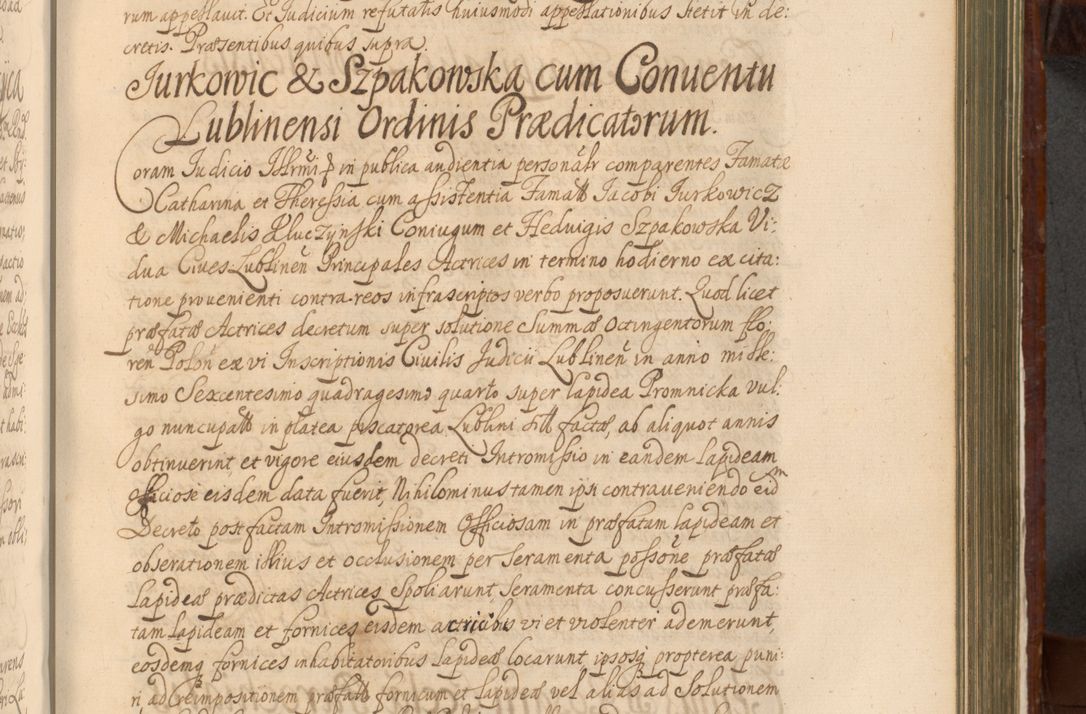 rum appellavit. Et Judicium refutatis huiusmodi appellationibus stetit in de:
cretis. Præsentibus quibus supra.
Jurkowic & Szpakowska cum Conuentu
Lublinensi Ordinis Prædicatorum.
Coram Judicio Illrmi in publica audientia personalr comparentes Famatæ
Catharina et Theressia cum assistentia Famatt Jacobi Jurkowicz
& Michaelis Kluczynski Coniugum et Hedvigis Szpakowska Vi:
dua Cives Lublinen Principales Actrices in termino hodierno ex cita:
tione provenienti contra reos infrascriptos verbo proposuerunt. Quod licet
præfatæ Actrices decretum super solutione Summæ octingentorum flo:
ren Polon ex vi Inscriptionis Civilis Judicii Lublinen in anno mille:
simo Sexcentesimo quadragesimo quarto super lapidea Promnicka vul:
go nuncupatt in platea piscatorea Lublini sitt factæ, ab aliquot annis
obtinuerint, et vigore eiusdem decreti Intromissio in eandem lapideam
officiose eisdem data fuerit, Nihilominus tamen ipsi contraveniendo eidm
Decreto post factam Intromissionem Officiosam in præfatam lapideam et
obserationem illius et occlusionem per seramenta possone præfatæ
lapideæ prædictas Actrices Spoliarunt seramenta concusserunt præfa:
tam lapideam et fornices eisdem actricibus vi et violenter ademerunt,
eosdemq fornices inhabitatoribus lapideæ locarunt, ipsosq propterea puni:
ri ad Reimpositionem præfatt fornicum et lapideæ vel alias ad Solutionem